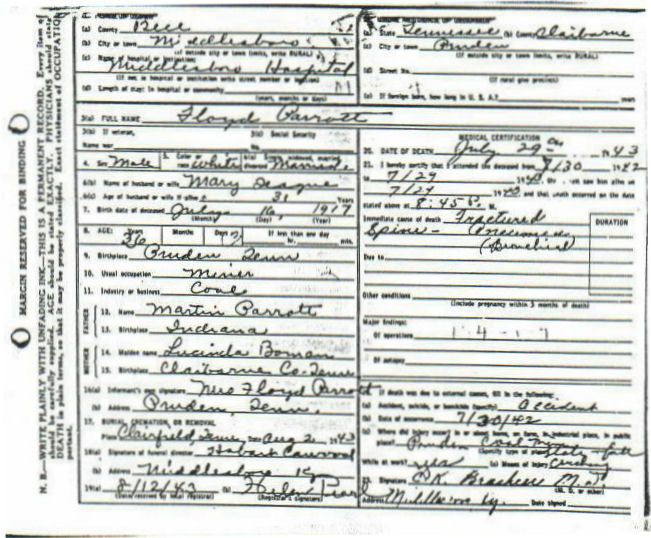 MARGIN RESERVED FOR BINDING
N. B.—WRITE PLAINLY WITH UNFADING INK—THIS IS A PERMANENT RECORD. Every item of
should be carefully supplied. AGE should be stated EXACTLY. PHYSICIANS should state
DEATH in plain terms, so that it may be properly classified. Exact statement of OCCUPATION
(a) County Bell
(b) City or town Middlesboro
(If outside city or town limits, write RURAL)
(c) Name of hospital or institution:
Middlesboro Hospital
(If not in hospital or institution write street number or location)
(d) Length of stay: In hospital or community
(years, months or days)
(a) State Tennessee (b) County Claiborne
(c) City or town Pruden
(If outside city or town limits, write RURAL)
(d) Street No.
(If rural give precinct)
(e) If foreign born, how long in U. S. A.? years
3(a) FULL NAME Floyd Parrott
3(b) If veteran,
Name war
3(c) Social Security
No.
4. Sex Male 5. Color or race White Married
6(b) Name of husband or wife Mary
6(c) Age of husband or wife if alive 31 Years
7. Birth date of deceased July 16, 1917
(Month) (Day) (Year)
8. AGE: Years Months Days If less than one day
26 hr. min.
9. Birthplace Pruden Tenn
10. Usual occupation Miner
11. Industry or business Coal
FATHER
12. Name Martin Parrott
13. Birthplace Indiana
MOTHER
14. Maiden name Lucinda Boman
15. Birthplace Claiborne Co. Tenn
16(a) Informant's own signature Mrs Floyd Parrott
(b) Address Pruden, Tenn.
17. BURIAL, CREMATION, OR REMOVAL
Place Clairfield, Tenn, Date Aug 2 1943
18(a) Signature of funeral director Hobart Cawood
(b) Address Middlesboro Ky
19(a) 8/12/43 (b) Helen
(Date received by local registrar) (Registrar's signature)
MEDICAL CERTIFICATION
20. DATE OF DEATH July 29 1943
21. I hereby certify that I attended the deceased from 7/30 1942
to 7/29 1943, that I last saw him alive on
7/29 1943, and that death occurred on the date
stated above at 8:45 P. M.
Immediate cause of death Fractured
Spine -
(Bronchial)
DURATION
Due to
Other conditions
(Include pregnancy within 3 months of death)
Major findings:
Of operations
Of autopsy
22. If death was due to external causes, fill in the following:
(a) Accident, suicide, or homicide (specify) accident
(b) Date of occurrence 7/30/42
(c) Where did injury occur? in or about home, on farm, in industrial place, in public
place? Pruden Coal Mine
(Specify type of place)
While at work? yes (e) Means of injury
Signature K Brashear M.D
(M. D. or other)
Address Middlesboro Ky. Date signed